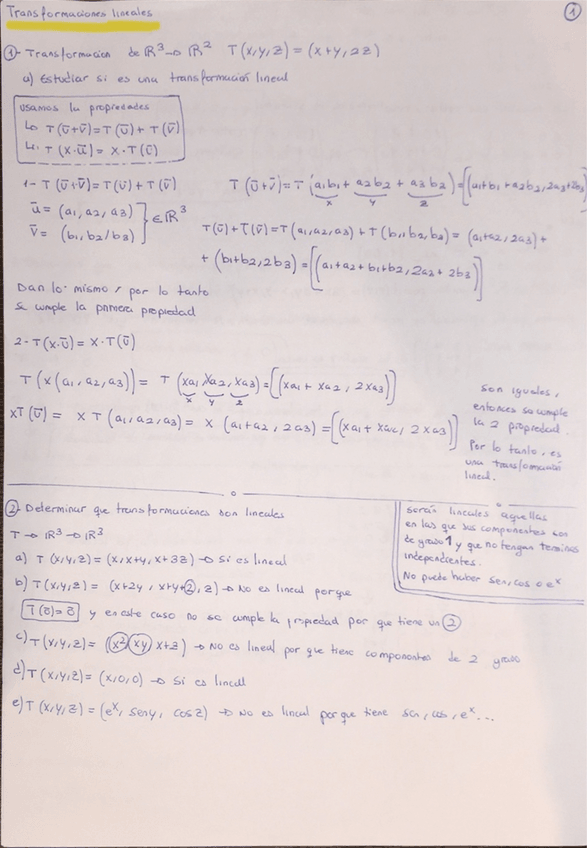 Transformaciones lineales
1
1- Transformacion de ℝ³→ℝ² T(x,y,z) = (x+y, 2z)
a) Estudiar si es una transformación lineal
Usamos la propiedades
↳ T(ū+v̄)=T(ū)+T(v̄)
↳ T(x·ū)= x·T(ū)
1- T(ū+v̄)=T(u)+T(v̄)
ū = (a1, a2, a3)
v̄ = (b1, b2, b3)
} ∈ ℝ³
T(ū+v̄)=T (a1b1 + a2b2 + a3b2)=[(a1+b1+a2b2, 2a3+2b3)]
x y z
T(ū)+T(v̄)=T(a1,a2,a3)+T(b1,b2,b2) = (a1+a2, 2a3)+
+ (b1+b2, 2b3) = [(a1+a2+b1+b2, 2a2+2b3)]
Dan lo mismo, por lo tanto
se cumple la primera propiedad
2- T(x·ū)= x·T(ū)
T(x(a1,a2,a3)) = T(xa1, xa2, xa3)=[(xa1+xa2, 2xa3)]
x y z
xT(ū) = x T(a1,a2,a3)= x (a1+a2, 2a3) =[(xa1+xa2, 2xa3)]
Son iguales,
entonces se cumple
la 2 propiedad.
Por lo tanto, es
una transformació
lineal.
2- Determinar que transformaciones son lineales
T→ℝ³→ℝ³
serán lineales aquellas
en las que sus componentes son
de grado 1 y que no tengan terminos
independientes.
No puede haber sen, cos o eˣ
a) T(x,y,z)= (x, x+y, x+3z) → Si es lineal
b) T(x,y,z)= (x+2y, x+y+2, z) → No es lineal porque
T(ō)=ō y en este caso no se cumple la propiedad por que tiene un 2
c) T(x,y,z)= (x², xy, x+z) → No es lineal por que tiene componentes de 2 grado
d) T(x,y,z)= (x,0,0) → Si es lineal
e) T(x,y,z)= (eˣ, seny, cosz) → No es lineal porque tiene sen, cos, eˣ...